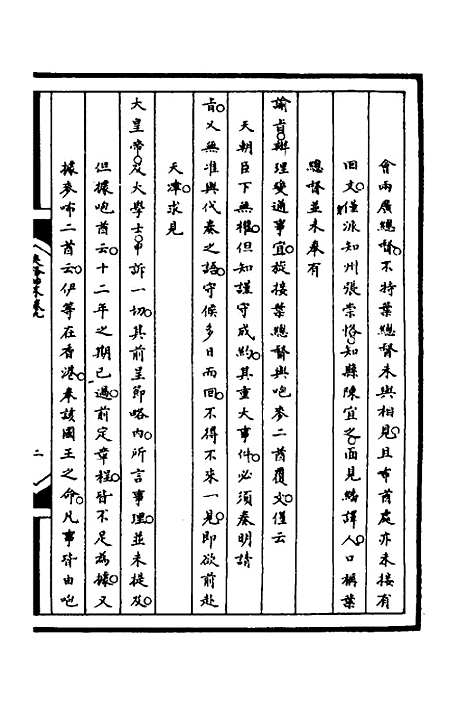 會兩廣總督。不特葉總督未與相見。且布酋處亦未接有
回文。僅派知州張崇恪。知縣陳宜之。面見繙譯人。口稱葉
總督並未奉有
諭旨。辦理變通事宜。旋接葉總督與咆麥二酋覆文。僅云
天朝臣下無權。但知謹守成約。其重大事件。必須奏明請
旨。又無准與代奏之語。守候多日而回。不得不來一見。即欲前赴
天津。求見
大皇帝。及大學士。申訴一切。其前呈節略內。所言事理。並未提及。
但據咆酋云。十二年之期已過。前定章程。皆不足為據。又
據麥咘二酋云。伊等在香港。奉該國王之命。凡事皆由咆
二